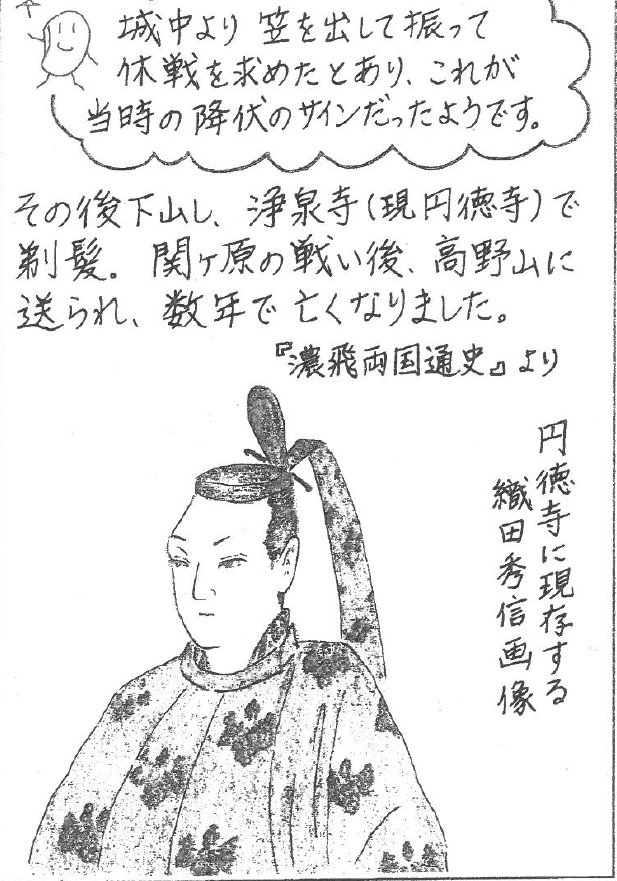 城中より笠を出して振って
休戦を求めたとあり、これが
当時の降伏のサインだったようです。
その後下山し、浄泉寺(現円徳寺)で
剃髪。関ヶ原の戦い後、高野山に
送られ、数年で亡くなりました。
『濃飛両国通史』より
円徳寺に現存する
織田秀信画像